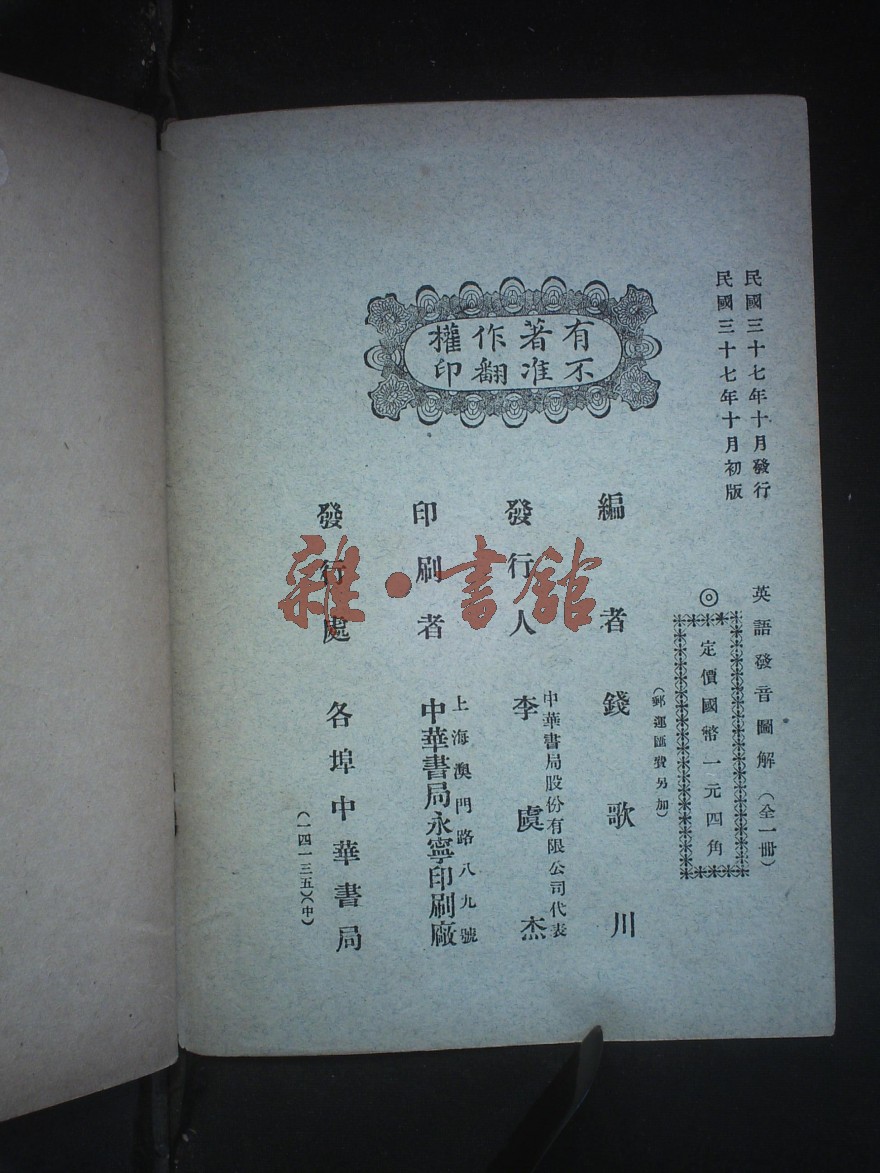 民國三十七年十月發行
民國三十七年十月初版
英語發音圖解（全一冊）
◎定價國幣一元四角
（郵運匯費另加）
有著作權
不准翻印
編者 錢歌川
發行人 中華書局股份有限公司代表
李虞杰
印刷者 上海澳門路八九號
中華書局永寧印刷廠
發行處 各埠中華書局
（一四一三五）（中）
雜·書館